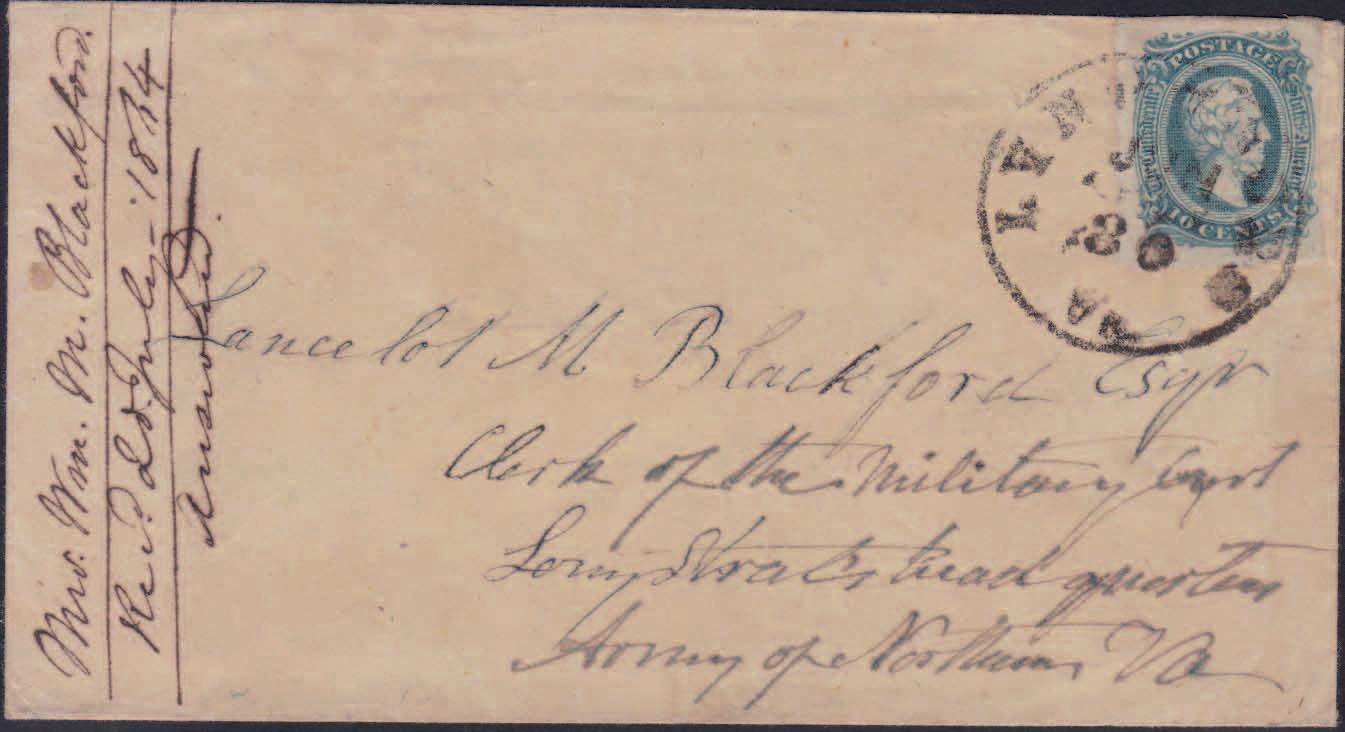 Mrs. Wm. M. Blackford.
Rec'd. July - 1864
Answered.
POSTAGE
The Confederate States of America
10 CENTS
LYN
VA
Lancelot M Blackford Esqr
Clerk of the Military Court
Longstreet's head quarters
Army of Northern Va